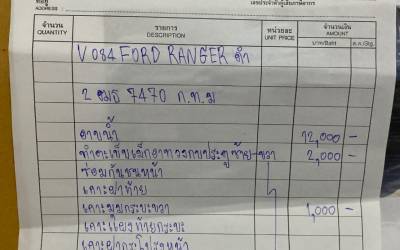 ที่อยู่
ADDRESS :
เลขประจำตัวผู้เสียภาษีอากร
จำนวน QUANTITY รายการ DESCRIPTION หน่วยละ UNIT PRICE จำนวนเงิน AMOUNT
บาท/Baht ส.ต./Stg.
V084 FORD RANGER ดำ
2 ฒธ 7470 ก.ท.ม
อาบน้ำ 12,000 -
ประตูซ้าย-ขวา 2,000 -
ซ่อมกันชนหน้า
เคาะฝาท้าย
เคาะมุมกระบะขวา 1,000 -
เคาะแผงท้ายกระบะ
เคาะฝากระโปรงหน้า